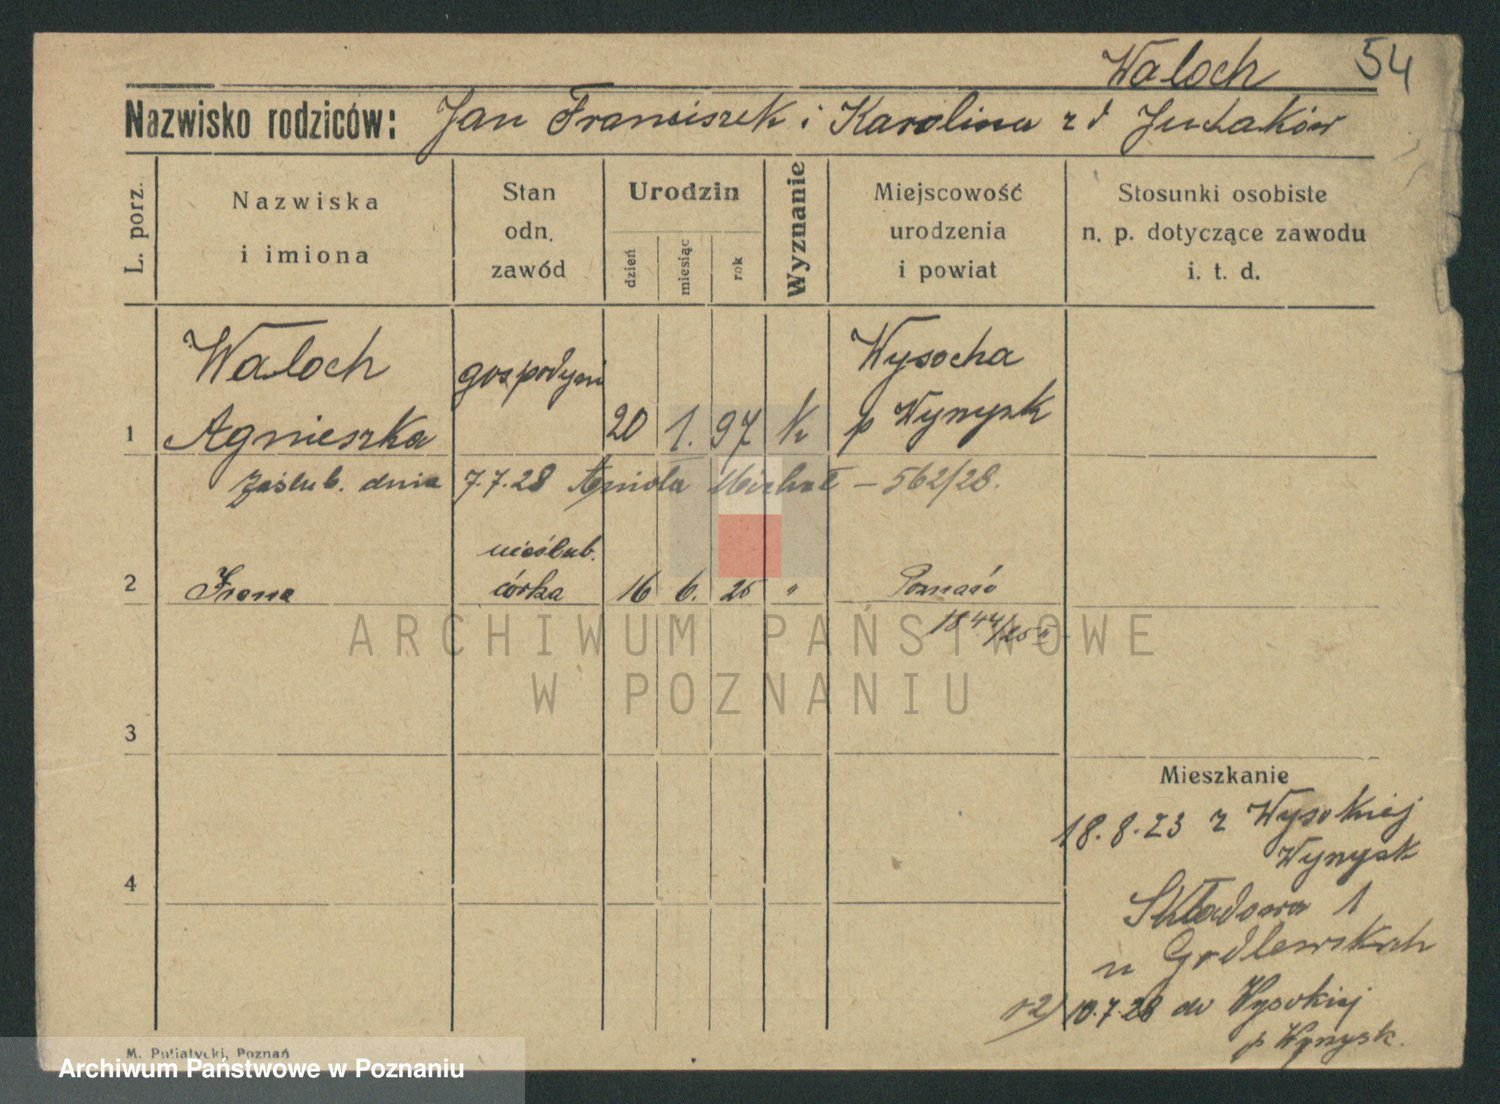 Waloch
54
Nazwisko rodziców: Jan Franciszek i Karolina z d
L. porz.
Nazwiska
i imiona
Stan
odn.
zawód
Urodzin
dzień
miesiąc
rok
Wyznanie
Miejscowość
urodzenia
i powiat
Stosunki osobiste
n. p. dotyczące zawodu
i. t. d.
1
Waloch
Agnieszka
gospodyni
20 1. 97 k
Wysocha
p Wyrzysk
zaślub. dnia 7.7.28 Anioła Michał – 562/28.
2
Irena
nieślub.
córka
16 6. 25 "
Poznań
1844/25
3
4
Mieszkanie
18.8.23 z Wysokiej
Wyrzysk
Składowa 1
u Godlewskich
10.7.28 do Wysokiej
p Wyrzysk.
M. Putiatycki, Poznań
ARCHIWUM PAŃSTWOWE
W POZNANIU
Archiwum Państwowe w Poznaniu